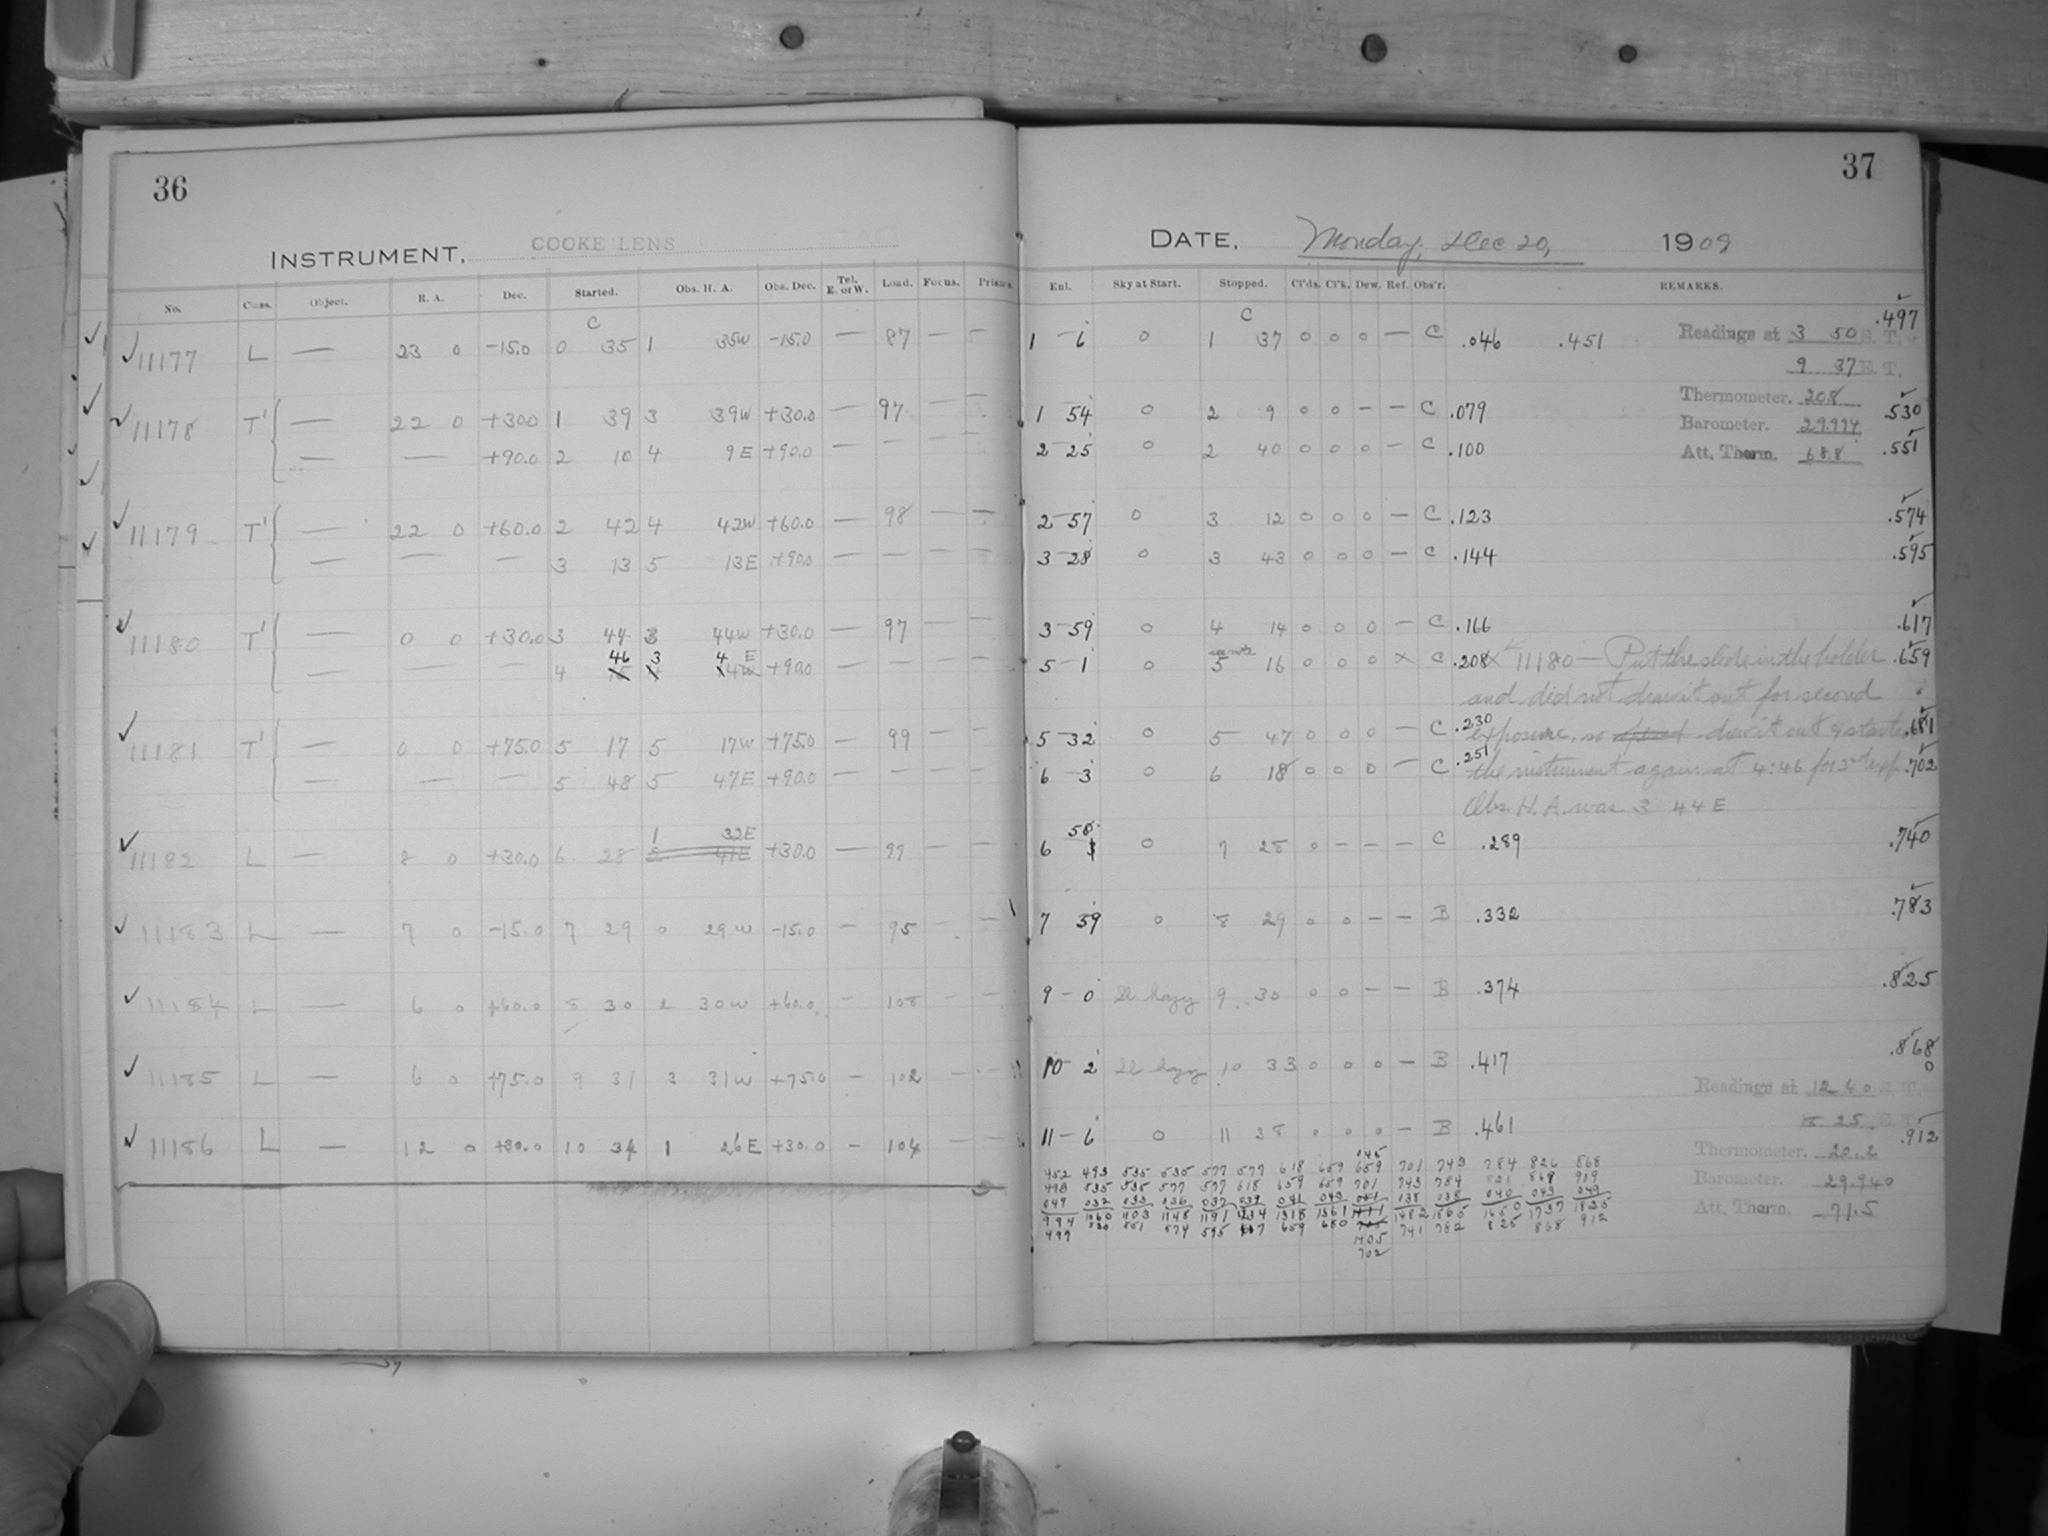 36
INSTRUMENT, COOKE LENS
No. Class. Object. R. A. Dec. Started. Obs. H. A. Obs. Dec. Tel. E. or W. Load. Focus. Prisms.
C
11177 L — 23 0 -15.0 0 35 1 35W -15.0 — 87 — —
11178 T' — 22 0 +30.0 1 39 3 39W +30.0 — 97 — —
— — +90.0 2 10 4 9E +90.0 — — — —
11179 T' — 22 0 +60.0 2 42 4 42W +60.0 — 98 — —
— — — 3 13 5 13E +90.0 — — — —
11180 T' — 0 0 +30.0 3 44 3 44W +30.0 — 97 — —
46 3 4 E
— — — 4 +90.0 — — — —
11181 T' — 0 0 +75.0 5 17 5 17W +75.0 — 99 — —
— — — 5 48 5 47E +90.0 — — — —
1 32E
11182 L — 8 0 +30.0 6 28 2 41E +30.0 — 99 — —
11183 L — 7 0 -15.0 7 29 0 29W -15.0 — 95 — —
11184 L — 6 0 +60.0 8 30 2 30W +60.0 — 108 — —
11185 L — 6 0 +75.0 9 31 3 31W +75.0 — 102 — —
11186 L — 12 0 +30.0 10 34 1 26E +30.0 — 104 — —
37
DATE, Monday, Dec 20, 1909
Enl. Sky at Start. Stopped. Cl'ds. Cl'k. Dew. Ref. Obs'r. REMARKS.
C
.497
1 6 0 1 37 0 0 0 — C .046 .451 Readings at 3 50 S. T.
9 37 E. T.
Thermometer. 20.8
1 54 0 2 9 0 0 — — C .079 .530
Barometer. 29.994
2 25 0 2 40 0 0 0 — C .100 Att. Therm. 68.8 .551
2 57 0 3 12 0 0 0 — C .123 .574
3 28 0 3 43 0 0 0 — C .144 .595
3 59 0 4 14 0 0 0 — C .166 .617
see note
5 1 0 5 16 0 0 0 x C .208 x 11180 — Put the slide in the holder .659
and did not draw it out for second
5 32 0 5 47 0 0 0 — C .230 exposure, so draw it out & started .681
6 3 0 6 18 0 0 0 — C .251 the instrument again at 4:46 for 2d exp. .702
Obs. H. A. was 3 44 E
58
6 0 7 28 0 — — — C .289 .740
7 59 0 8 29 0 0 — — B .332 .783
9 0 Sl hazy 9 30 0 0 — — B .374 .825
10 2 Sl hazy 10 33 0 0 0 — B .417 .868
Readings at 12 40 S. T.
18 25 E. T.
11 6 0 11 38 0 0 0 — B .461 .912
Thermometer. 20.2
Barometer. 29.940
Att. Therm. 71.5
045
452 493 535 535 577 577 618 659 659 701 743 784 826 868
498 535 535 577 577 618 659 659 701 743 784 821 868 909
049 032 033 036 037 039 041 043 138 038 040 043 049
994 1060 1103 1148 1191 1234 1318 1361 1482 1565 1650 1737 1825
499 530 551 574 595 617 659 680 741 782 825 868 912
1405
702